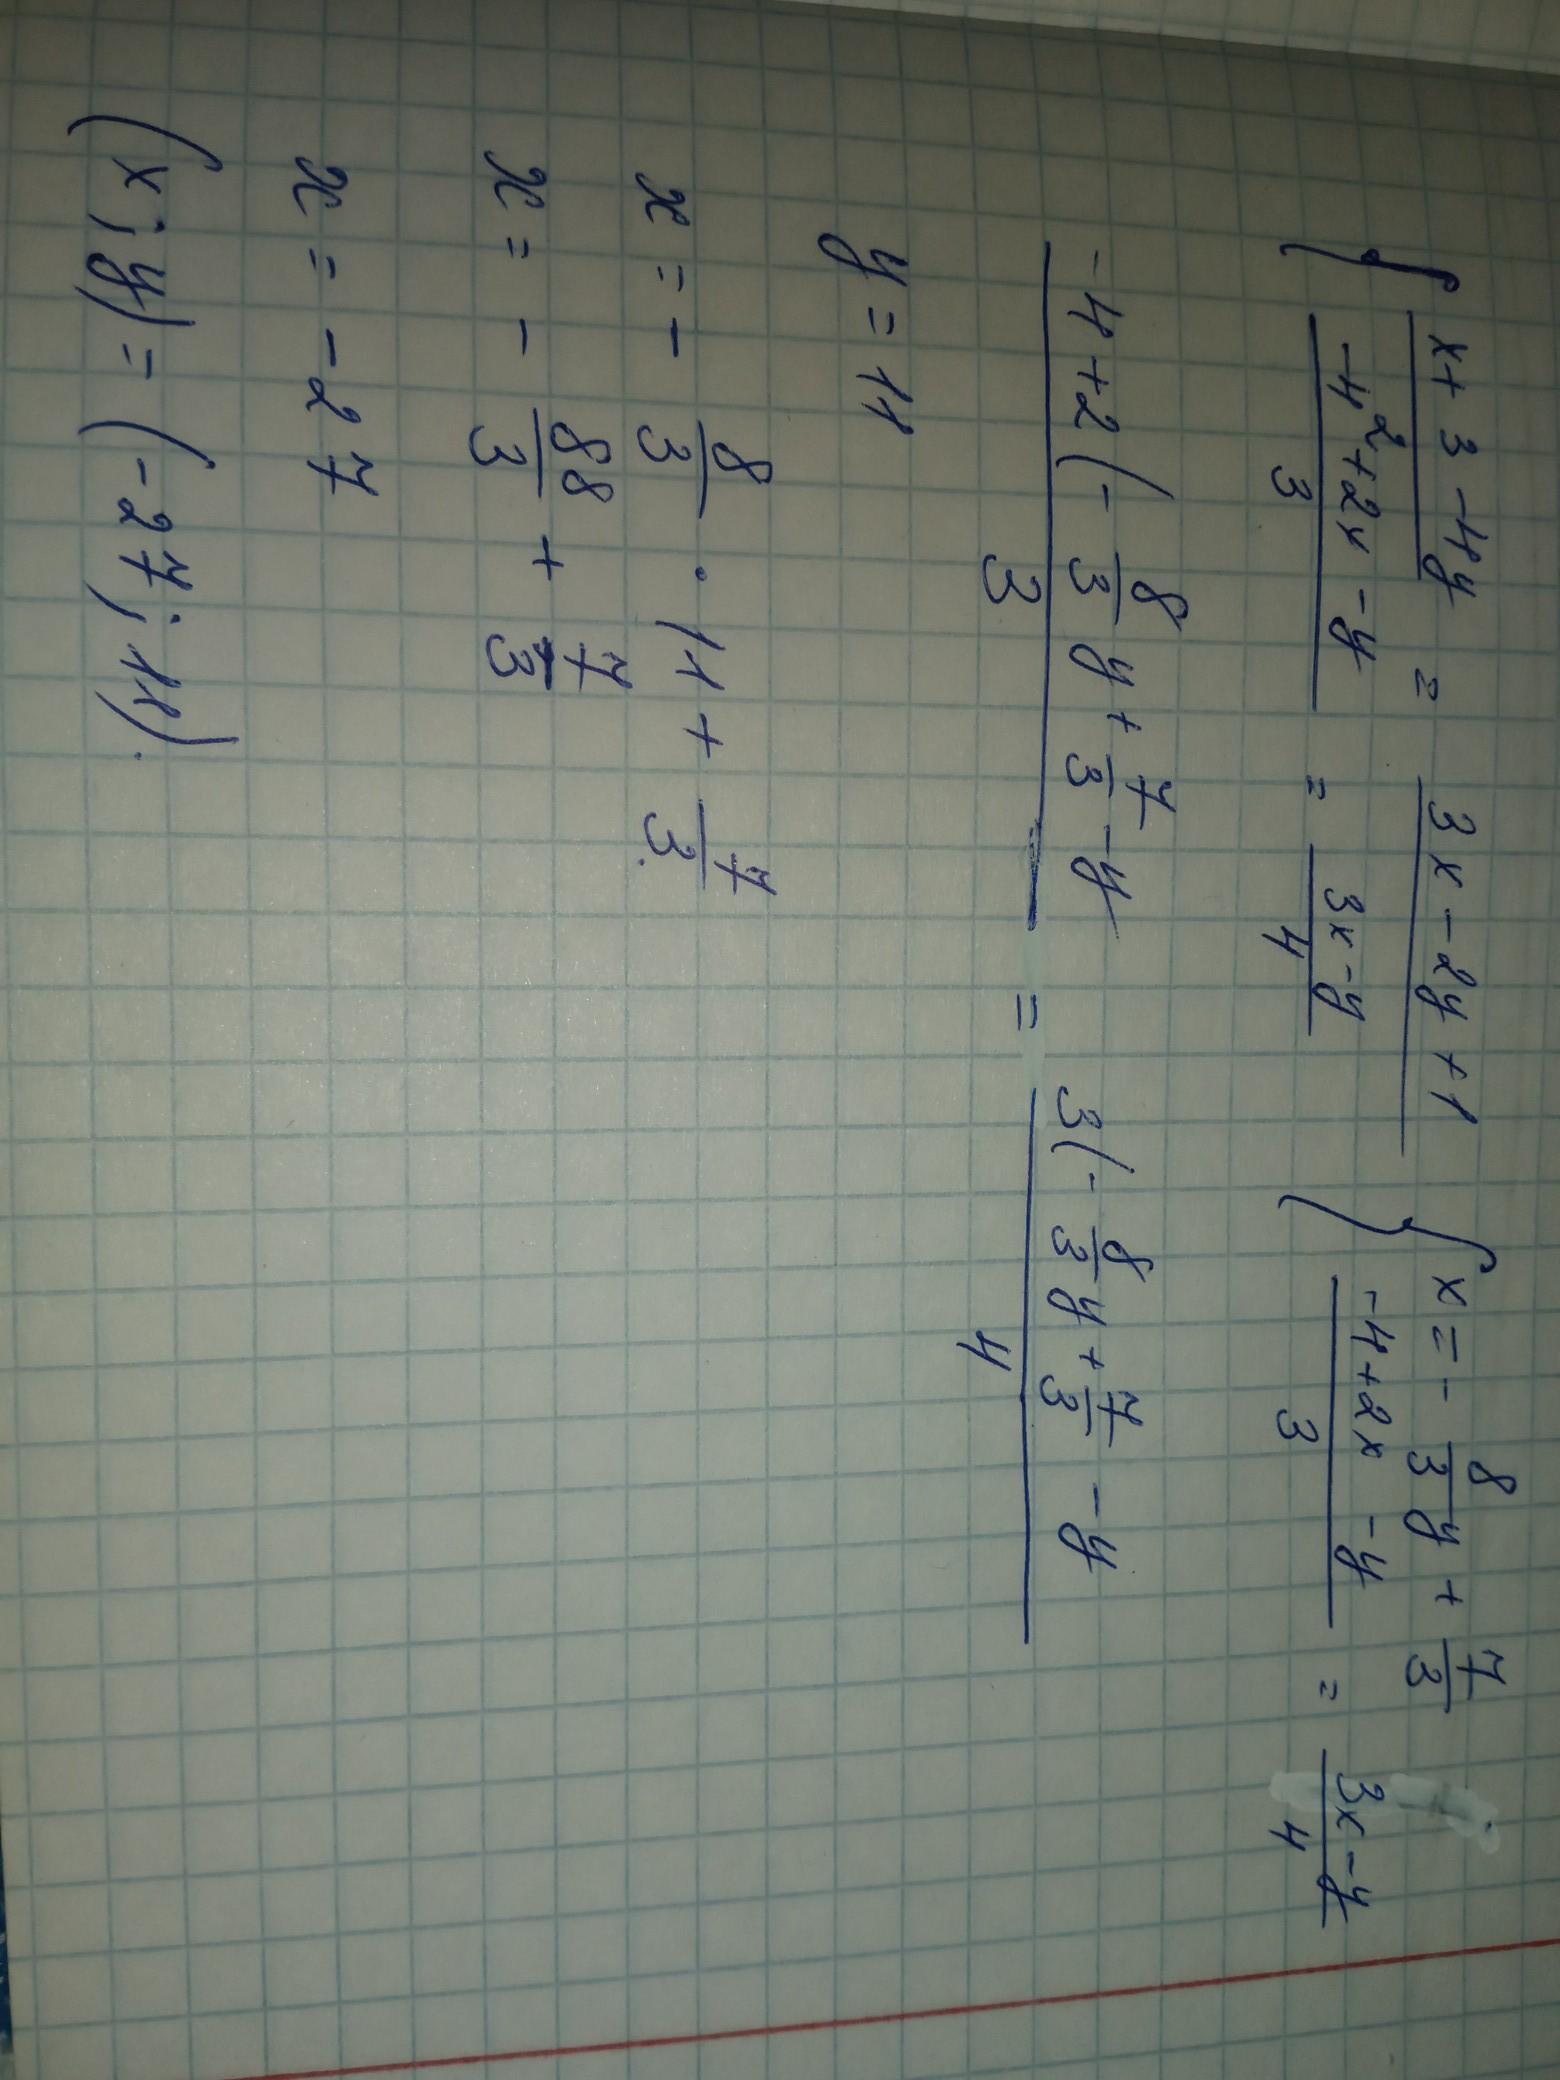 { x + 3 - 4y / 2 = 3x - 2y + 1 / 3 = -4 + 2x - y = 3x - y / 4 { x = - 8/3 y + 7/3 -4 + 2x - y / 3 = 3x - y / 4
-4 + 2 ( - 8/3 y + 7/3 - y / 3 = 3 ( - 8/3 y + 7/3 - y / 4
y = 11
x = - 8/3 · 11 + 7/3.
x = - 88/3 + 7/3
x = - 27
(x; y) = (-27; 11).